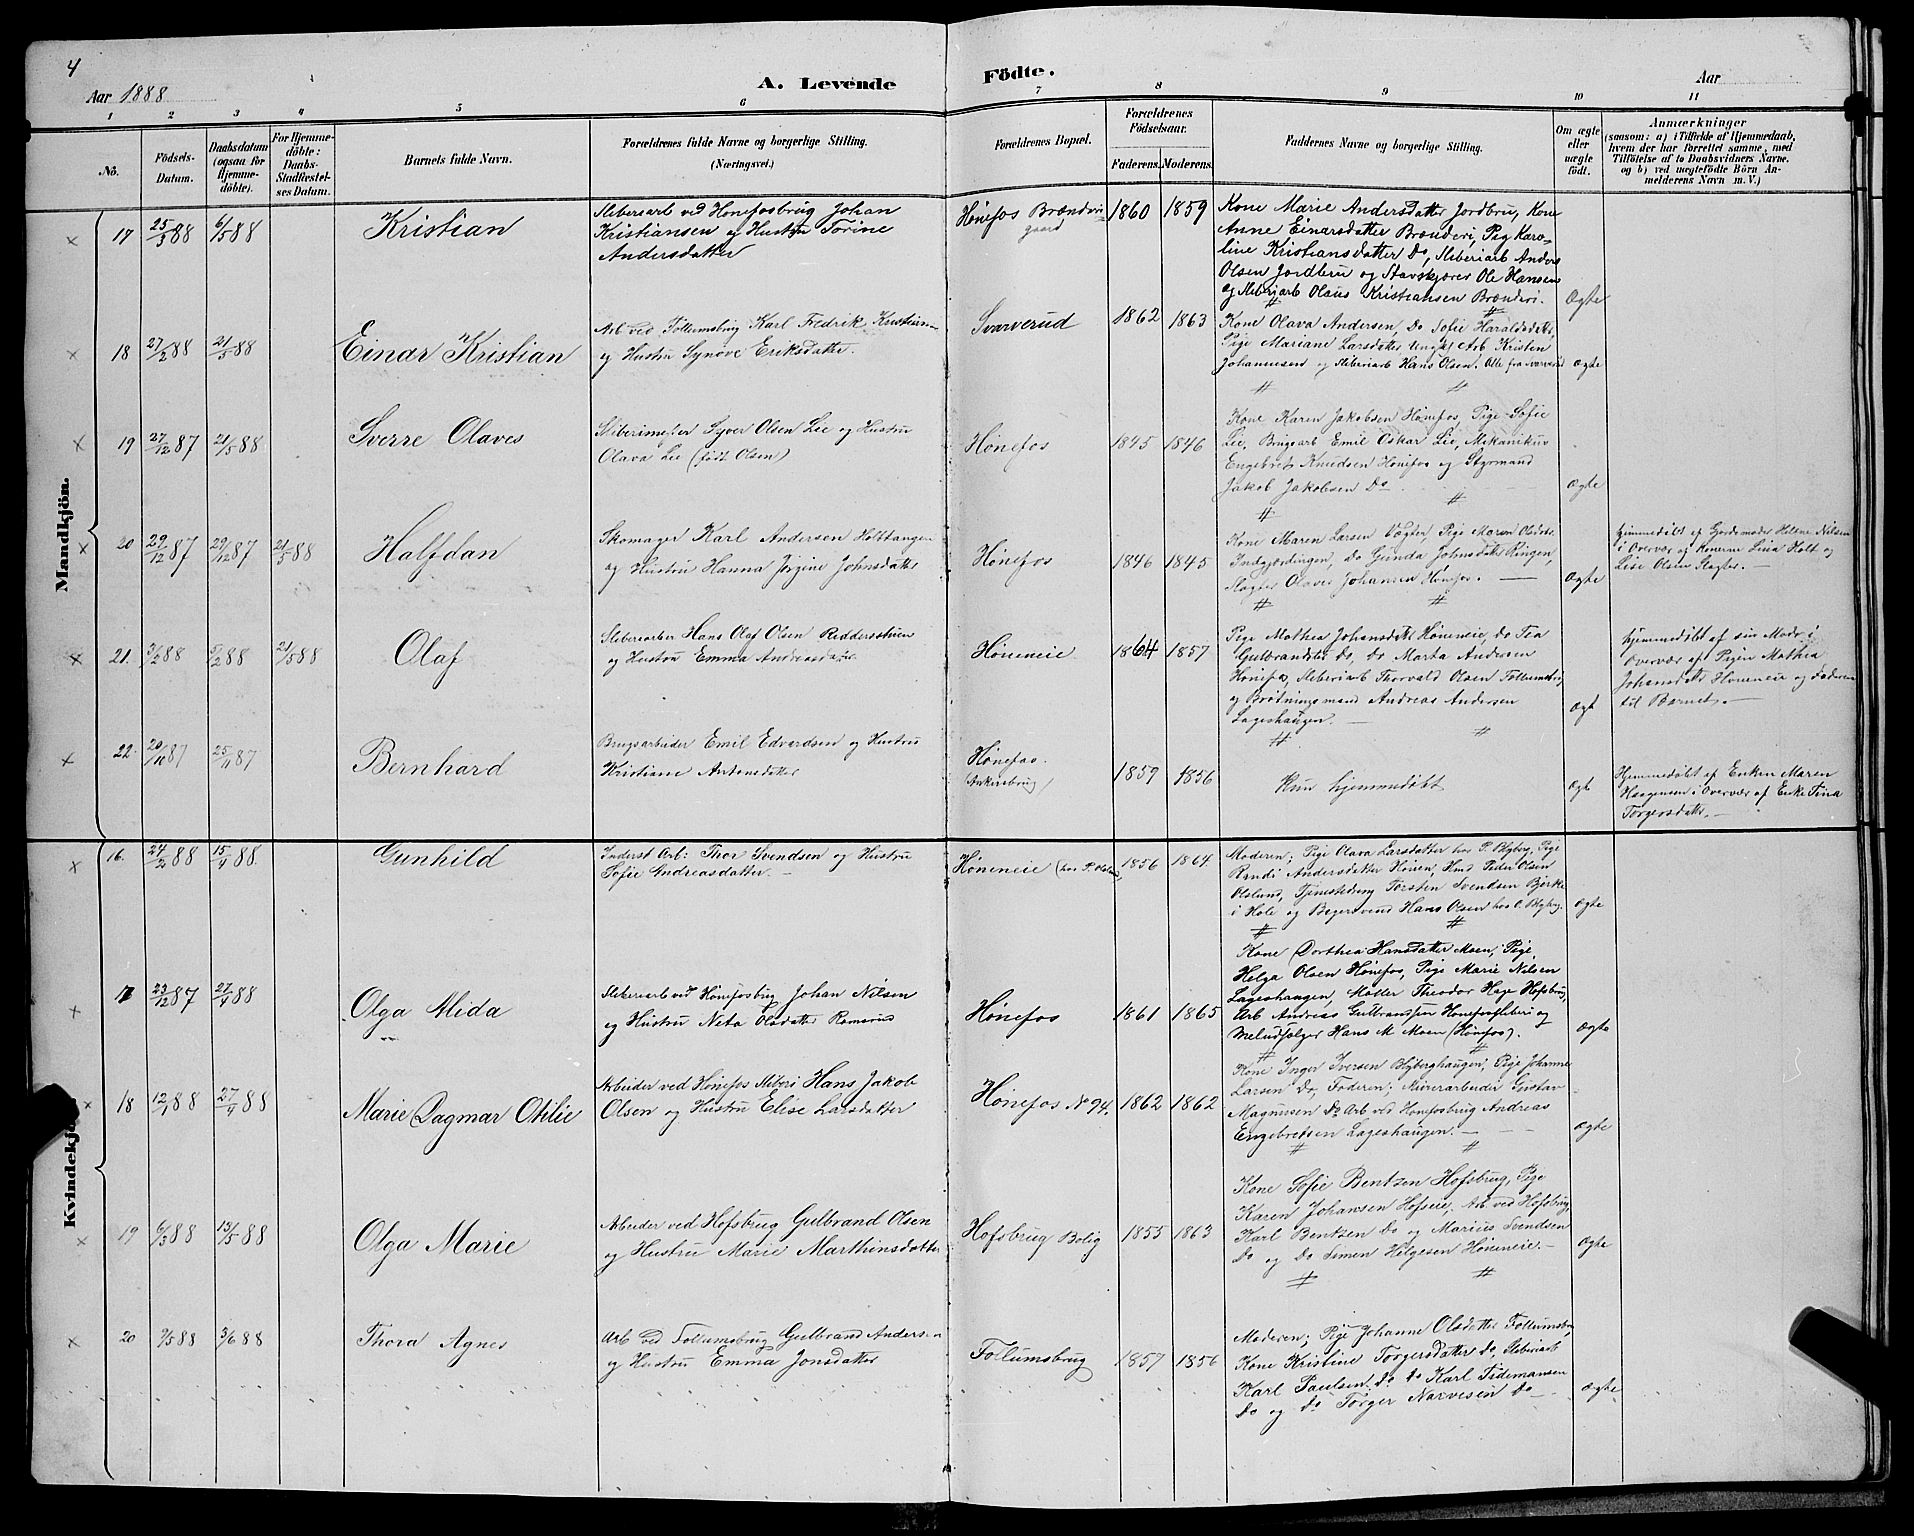 4
Aar 1888
A. Levende
Födte.
Aar
1 2 3 4 5 6 7 8 9 10 11
No.
Födsels-
Datum.
Daabsdatum
(ogsaa for
Hjemme-
döbte).
For Hjemme-
döbte:
Daabs-
Stadfæstel-
ses Datum.
Barnets fulde Navn.
Forældrenes fulde Navne og borgerlige Stilling.
(Næringsvei.)
Forældrenes Bopæl.
Forældrenes
Födselsaar.
Faderens. Moderens.
Faddernes Navne og borgerlige Stilling.
Om ægte
eller
uægte
födt.
Anmærkninger
(saasom: a) i Tilfælde af Hjemmedaab,
hvem der har forrettet samme, med
Tilföielse af to Daabsvidners Navne.
og b) ved uægtefödte Börn An-
melderens Navn m. V.)
Mandkjön.
× 17 25/3 88 6/5 88 Kristian
Sliberiarb ved Hønefosbrug Johan
Kristiansen og Hustru Torine
Andersdatter
Hønefos Brænderi
gaard
1860 1859
Kone Marie Andersdatter Jordbru, Kone
Anne Einarsdatter Brænderi, Pig Karo-
line Kristiansdatter Do, Sliberiarb Anders
Olsen Jordbru og Stavskjærer Ole Hansen
og Sliberiarb Olaus Kristiansen Brænderi.
Ægte
× 18 27/2 88 21/5 88 Einar Kristian
Arb ved Follumsbrug Karl Fredrik Kristian
og Hustru Synøve Eriksdatter.
Svarverud
1862 1863
Kone Olava Andersen, Do Sofie Haraldsdatter,
Pige Mariane Larsdatter Ungk Arb Kristen
Johannesen og Sliberiarb Hans Olsen. Alle fra Svarverud
Ægte
× 19 27/12 87 21/5 88 Sverre Olaves
Sliberimester Syver Olsen Lie og Hustru
Olava Lie (født Olsen)
Hønefos
1845 1846
Kone Karen Jakobsen Hønefos, Pige Sofie
Lie, Brugsarb Emil Oskar Lie, Mekanikus
Engebret Knudsen Hønefos og Styrmand
Jakob Jakobsen Do
Ægte
× 20 29/12 87 29/12 87 21/5 88 Halfdan
Skomager Karl Andersen Holttangen
og Hustru Hanna Jørgine Johnsdatter
Hønefos
1846 1845
Kone Maren Larsen Vægter, Pige Maren Olsdatter
Do Gunda Johnsdatter Ringen,
Slagter Olaves Johansen Hønefos.
Ægte
Hjemmedøbt af Jordemoder Helene Nilsen
i Overvær af Konerne Lina Holt og
Lise Olsen Slagter.
× 21. 3/2 88 5/2 88 21/5 88 Olaf
Sliberiarber Hans Olaf Olsen Reddersstuen
og Hustru Emma Andreasdatter
Høneneie
1864 1857
Pige Mathea Johansdatter Høneneie, Do Tea
Gulbrandsdatter Do, Do Marta Andersen
Hønefos, Sliberiarb Thorvald Olsen Follumsbrug
og Brødningsmand Andreas Andersen
Lageshaugen.
Ægt
Hjemmedøbt af sin Moder i
Overvær af Pigen Mathea
Johansdatter Høneneie og Faderen
til Barnet.
× 22. 20/10 87 25/11 87 Bernhard
Brugsarbeider Emil Edvardsen og Hustru
Kristiane Antonsdatter
Hønefos.
(Ankersbrug)
1859 1856
Kun hjemmedøbt
Ægt
Hjemmedøbt af Enken Maren
Haagensen i Overvær af Enke Tina
Torgersdatter.
Kvindekjön.
× 16. 24/2 88 15/4 88 Gunhild
Inderst Arb: Thor Svendsen og Hustru
Sofie Andreasdatter.
Høneneie (hos P. Olslund)
1856 1864
Moderen; Pige Olava Larsdatter hos P. Blyberg, Pige
Randi Andersdatter Hønen, Hmd Peder Olsen
Olslund, Tjenestedreng Torsten Svendsen Bjerke
i Hole og Bagersvend Hans Olsen hos O. Blyberg.
Ægte
× 17 23/12 87 27/4 88 Olga Mida
Sliberiarb ved Hønefosbrug Johan Nilsen
og Hustru Neta Olsdatter Ramsrud
Hønefos
1861 1865
Kone Dorthea Hansdatter Moen, Pige
Helga Olsen Hønefos, Pige Marie Nilsen
Lageshaugen, Møller Theodor Hage Hofsbrug,
Arb Andreas Gulbransen Hønefossliberi og
Meludsælger Hans M Moen (Hønefos).
Ægte
× 18 12/1 88 27/4 88 Marie Dagmar Otilie
Arbeider ved Hønefos Sliberi Hans Jakob
Olsen og Hustru Elise Larsdatter
Hønefos N 94.
1862 1862
Kone Inger Iversen Blyberghaugen, Pige Johanne
Larsen Do, Faderen; Murerarbeider Gustav
Magnusen Do Arb ved Hønefosbrug Andreas
Engebretsen Lageshaugen.
Ægte
× 19 6/3 88 13/5 88 Olga Marie
Arbeider ved Hofsbrug Gulbrand Olsen
og Hustru Marie Marthinsdatter
Hofsbrug Bolig
1855 1863
Kone Sofie Bentzen Hofsbrug, Pige
Karen Johansen Hofseie, Arb ved Hofsbrug
Karl Bentzen Do og Marius Svendsen
Do og Do Simen Helgesen Høneneie.
Ægte
× 20 9/5 88 3/6 88 Thora Agnes
Arb ved Follumsbrug Gulbrand Andersen
og Hustru Emma Jonsdatter
Follumsbrug
1857 1856
Moderen; Pige Johanne Olsdatter Follumsbrug,
Kone Kristine Torgersdatter Do, Sliberiarb
Karl Paulsen Do Do Karl Tidemansen
Do og Do Torger Narvesen Do
Ægte